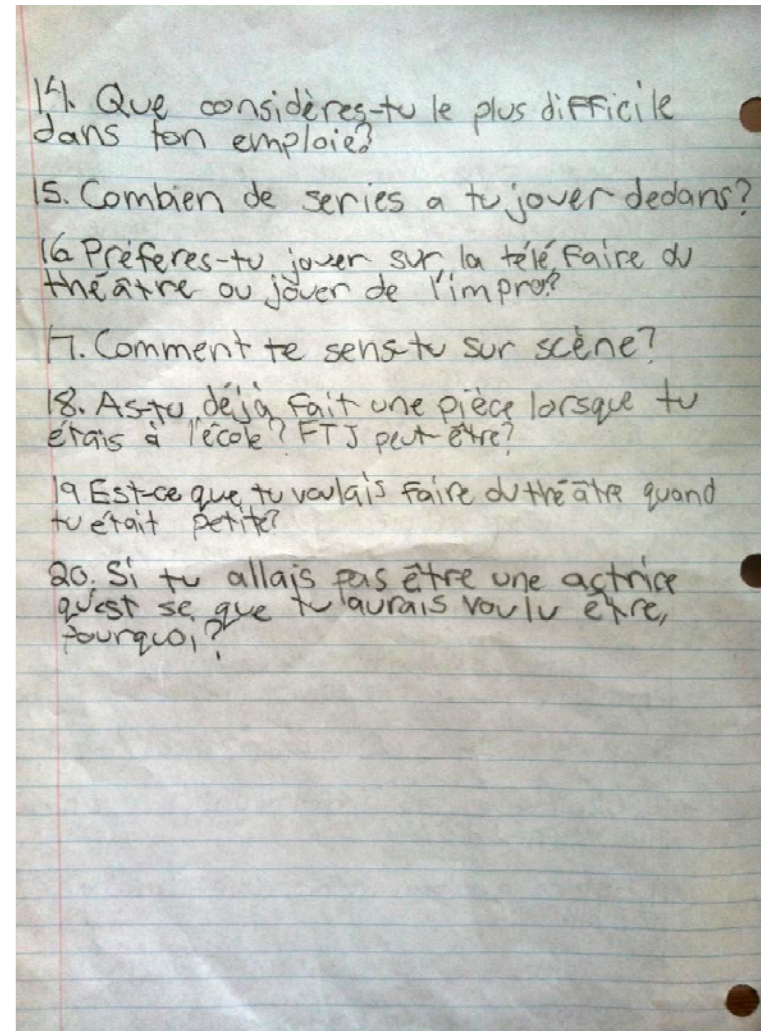 14. Que considères-tu le plus difficile
dans ton emploie?
15. Combien de series a tu jouer dedans?
16 Préferes-tu jouer sur la télé, faire du
théâtre ou jouer de l'impro?
17. Comment te sens-tu sur scène?
18. As-tu déjà fait une pièce lorsque tu
étais à l'école? FTJ peut-être?
19 Est-ce que tu voulais faire du théâtre quand
tu était petite?
20. Si tu allais pas être une actrice
qu'est se que tu aurais voulu être,
pourquoi?